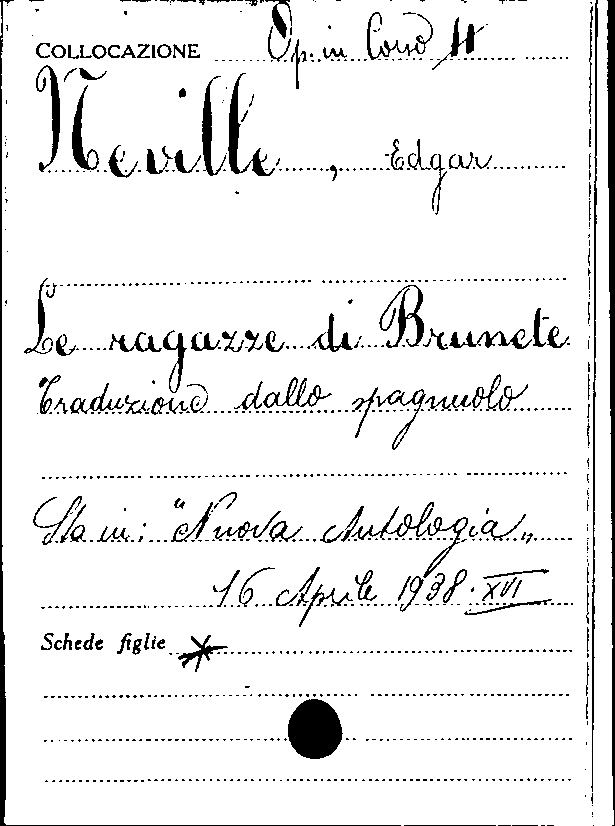 COLLOCAZIONE Op. in Corso 4
Neville, Edgar
Le ragazze di Brunete
Traduzione dallo spagnuolo
Sta in: "Nuova Antologia„
16 Aprile 1938. XVI
Schede figlie *